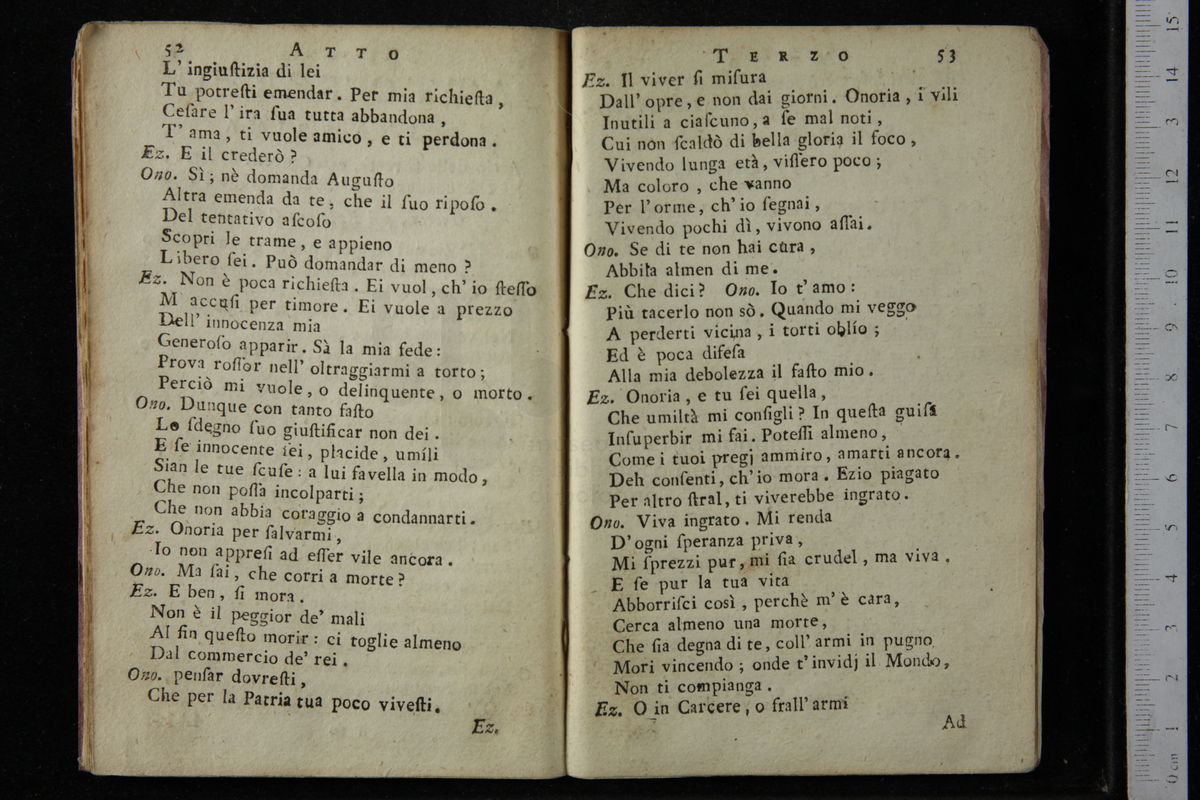 52 ATTO
L' ingiuſtizia di lei
Tu potreſti emendar. Per mia richieſta,
Ceſare l' ira ſua tutta abbandona,
T' ama, ti vuole amico, e ti perdona.
Ez. E il crederò?
Ono. Sì; nè domanda Auguſto
Altra emenda da te, che il ſuo ripoſo.
Del tentativo aſcoſo
Scopri le trame, e appieno
Libero ſei. Può domandar di meno?
Ez. Non è poca richieſta. Ei vuol, ch' io ſteſſo
M' accuſi per timore. Ei vuole a prezzo
Dell' innocenza mia
Generoſo apparir. Sà la mia fede:
Prova roſſor nell' oltraggiarmi a torto;
Perciò mi vuole, o delinquente, o morto.
Ono. Dunque con tanto faſto
Lo ſdegno ſuo giuſtificar non dei.
E ſe innocente ſei, placide, umíli
Sian le tue ſcuſe: a lui favella in modo,
Che non poſſa incolparti;
Che non abbia coraggio a condannarti.
Ez. Onoria per ſalvarmi,
Io non appreſi ad eſſer vile ancora.
Ono. Ma ſai, che corri a morte?
Ez. E ben, ſi mora.
Non è il peggior de' mali
Al fin queſto morir: ci toglie almeno
Dal commercio de' rei.
Ono. penſar dovreſti,
Che per la Patria tua poco viveſti.
Ez.
TERZO 53
Ez. Il viver ſi miſura
Dall' opre, e non dai giorni. Onoria, i vili
Inutili a ciaſcuno, a ſe mal noti,
Cui non ſcaldò di bella gloria il foco,
Vivendo lunga età, viſſero poco;
Ma coloro, che vanno
Per l'orme, ch' io ſegnai,
Vivendo pochi dì, vivono aſſai.
Ono. Se di te non hai cura,
Abbila almen di me.
Ez. Che dici? Ono. Io t' amo:
Più tacerlo non sò. Quando mi veggo
A perderti vicina, i torti oblío;
Ed è poca difeſa
Alla mia debolezza il faſto mio.
Ez. Onoria, e tu ſei quella,
Che umiltà mi conſigli? In queſta guiſa
Inſuperbir mi fai. Poteſſi almeno,
Come i tuoi pregj ammiro, amarti ancora.
Deh conſenti, ch' io mora. Ezio piagato
Per altro ſtral, ti viverebbe ingrato.
Ono. Viva ingrato. Mi renda
D' ogni ſperanza priva,
Mi ſprezzi pur, mi ſia crudel, ma viva.
E ſe pur la tua vita
Abborriſci così, perchè m' è cara,
Cerca almeno una morte,
Che ſia degna di te, coll' armi in pugno
Mori vincendo; onde t' invidj il Mondo,
Non ti compianga.
Ez. O in Carcere, o frall' armi
Ad
15
14
3
12
11
10
9
8
7
6
5
4
3
2
1
0 cm